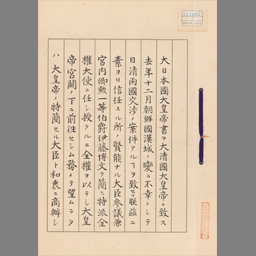 大日本國大皇帝書ヲ大清國大皇帝ニ致ス
去年十二月朝鮮國漢城ノ變ニ不幸ニシテ
日清兩國交渉ノ案件アルヲ致セリ朕茲ニ
素ヨリ信任スル所ノ賢能ナル大臣參議兼
宮内卿勲一等伯爵伊藤博文ヲ簡ヒ特派全
權大使ニ任シ授クルニ全權ヲ以テシ大皇
帝宮闕ノ下ニ前往セシム務メテ望ムラク
ハ大皇帝ノ特簡セル大臣ト和衷ニ商辦シ